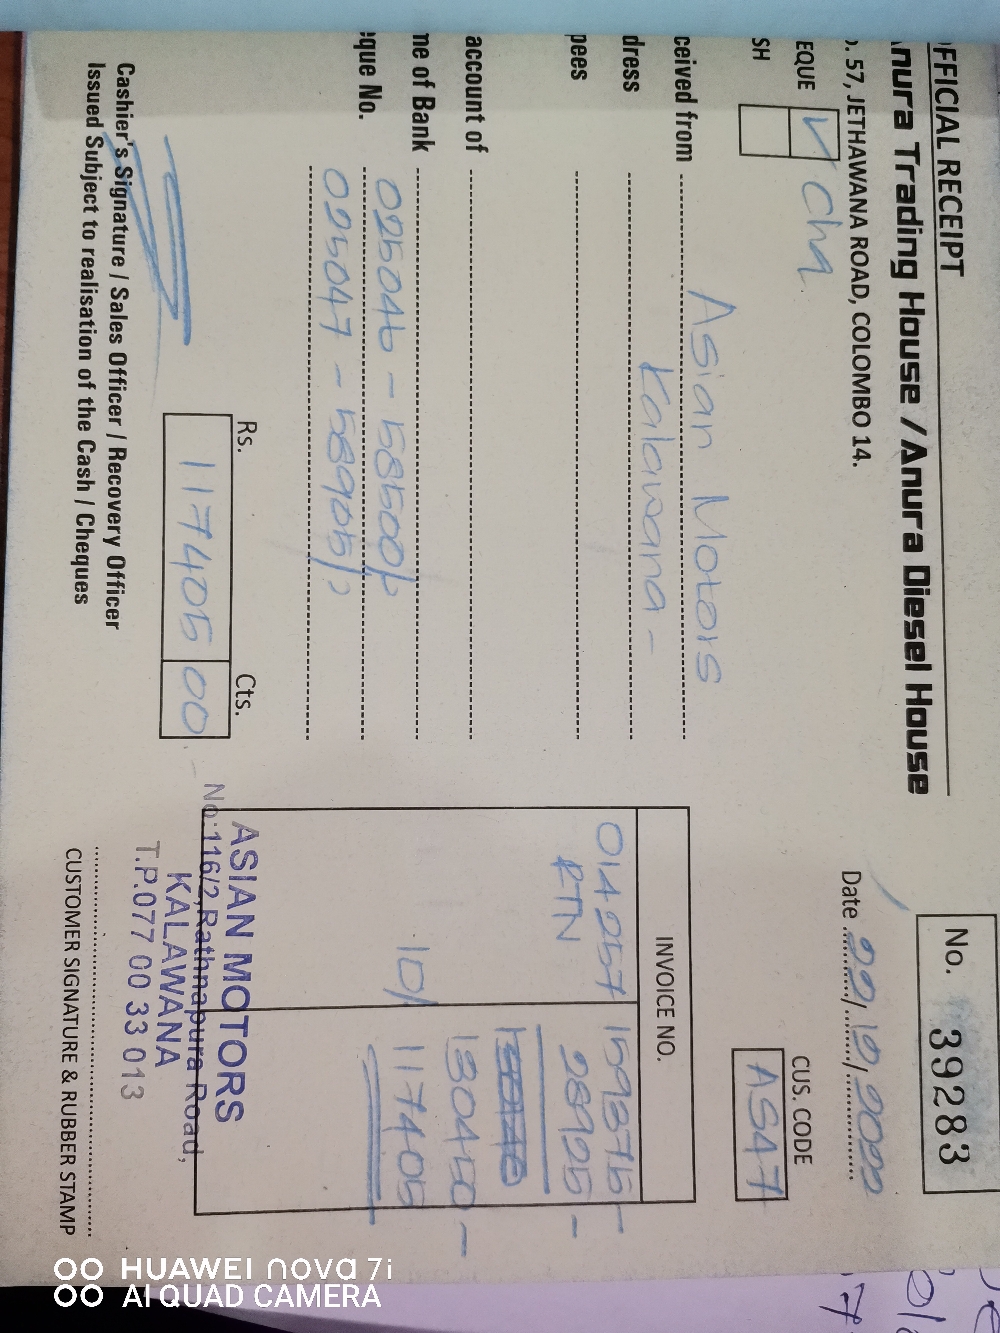 OFFICIAL RECEIPT
No. 39283
Anura Trading House / Anura Diesel House
. 57, JETHAWANA ROAD, COLOMBO 14.
Date 22/10/2022
EQUE ✓ Cha
SH
CUS. CODE
AS47
ceived from Asian Motors
dress Kalawana -
pees
account of
me of Bank 025046 - 58500/=
eque No. 025047 - 58905/=
INVOICE NO.
014257 159375-
RTN 28925-
130450-
10/ 117405
Rs. Cts.
117405 00
ASIAN MOTORS
No:116/2, Rathnapura Road,
KALAWANA
T.P.077 00 33 013
Cashier's Signature / Sales Officer / Recovery Officer
Issued Subject to realisation of the Cash / Cheques
CUSTOMER SIGNATURE & RUBBER STAMP
HUAWEI nova 7i
AI QUAD CAMERA